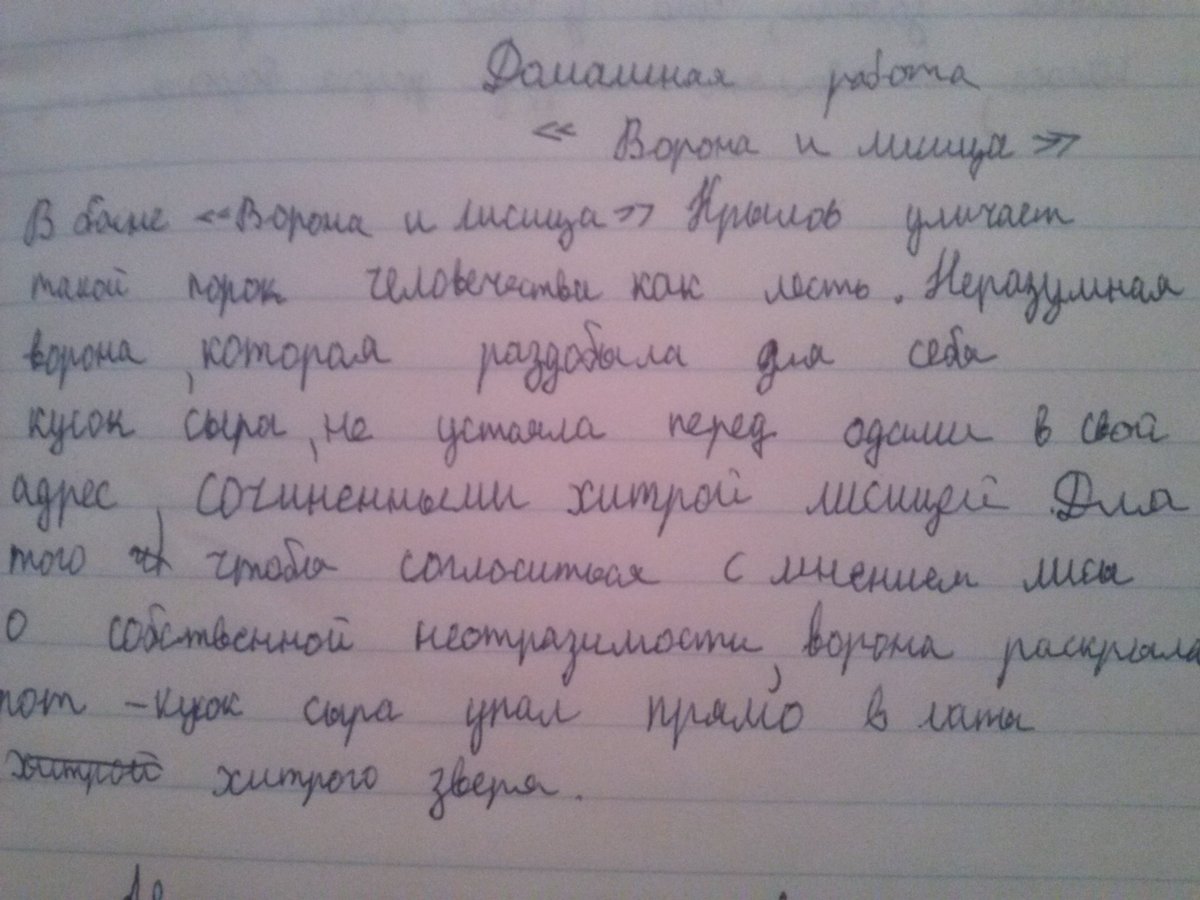 Домашная работа
« Ворона и лисица »
В басне «Ворона и лисица» Крылов уличает
такой порок человечества как лесть. Неразумная
ворона ,которая раздобыла для себя
кусок сыра, не устояла перед одами в свой
адрес, сочиненными хитрой лисицей .Для
того чтобы согласиться с мнением лисы
о собственной неотразимости, ворона раскрыла
рот -кусок сыра упал прямо в лапы
хитрой хитрого зверя.